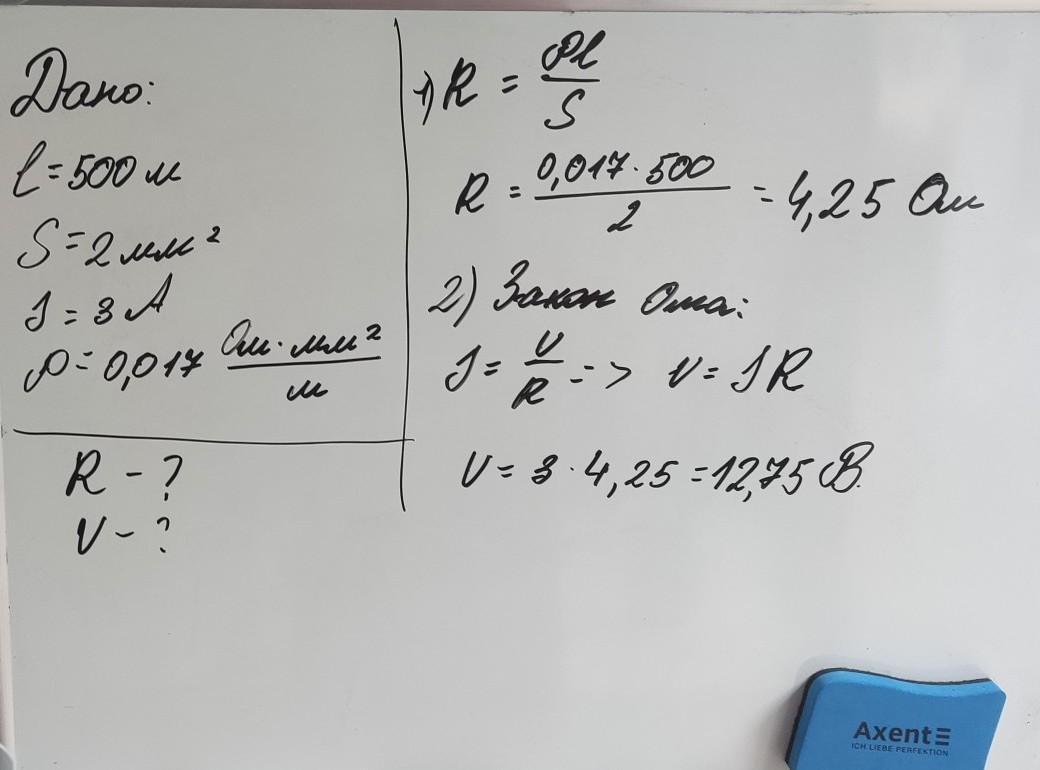 Дано:
l = 500 м
S = 2 мм²
I = 3 А
ρ = 0,017 Ом · мм² / м
R - ?
U - ?
1) R = ρl / S
R = 0,017 · 500 / 2 = 4,25 Ом
2) Закон Ома:
I = U / R => U = IR
U = 3 · 4,25 = 12,75 В.
Axent
ICH LIEBE PERFEKTION